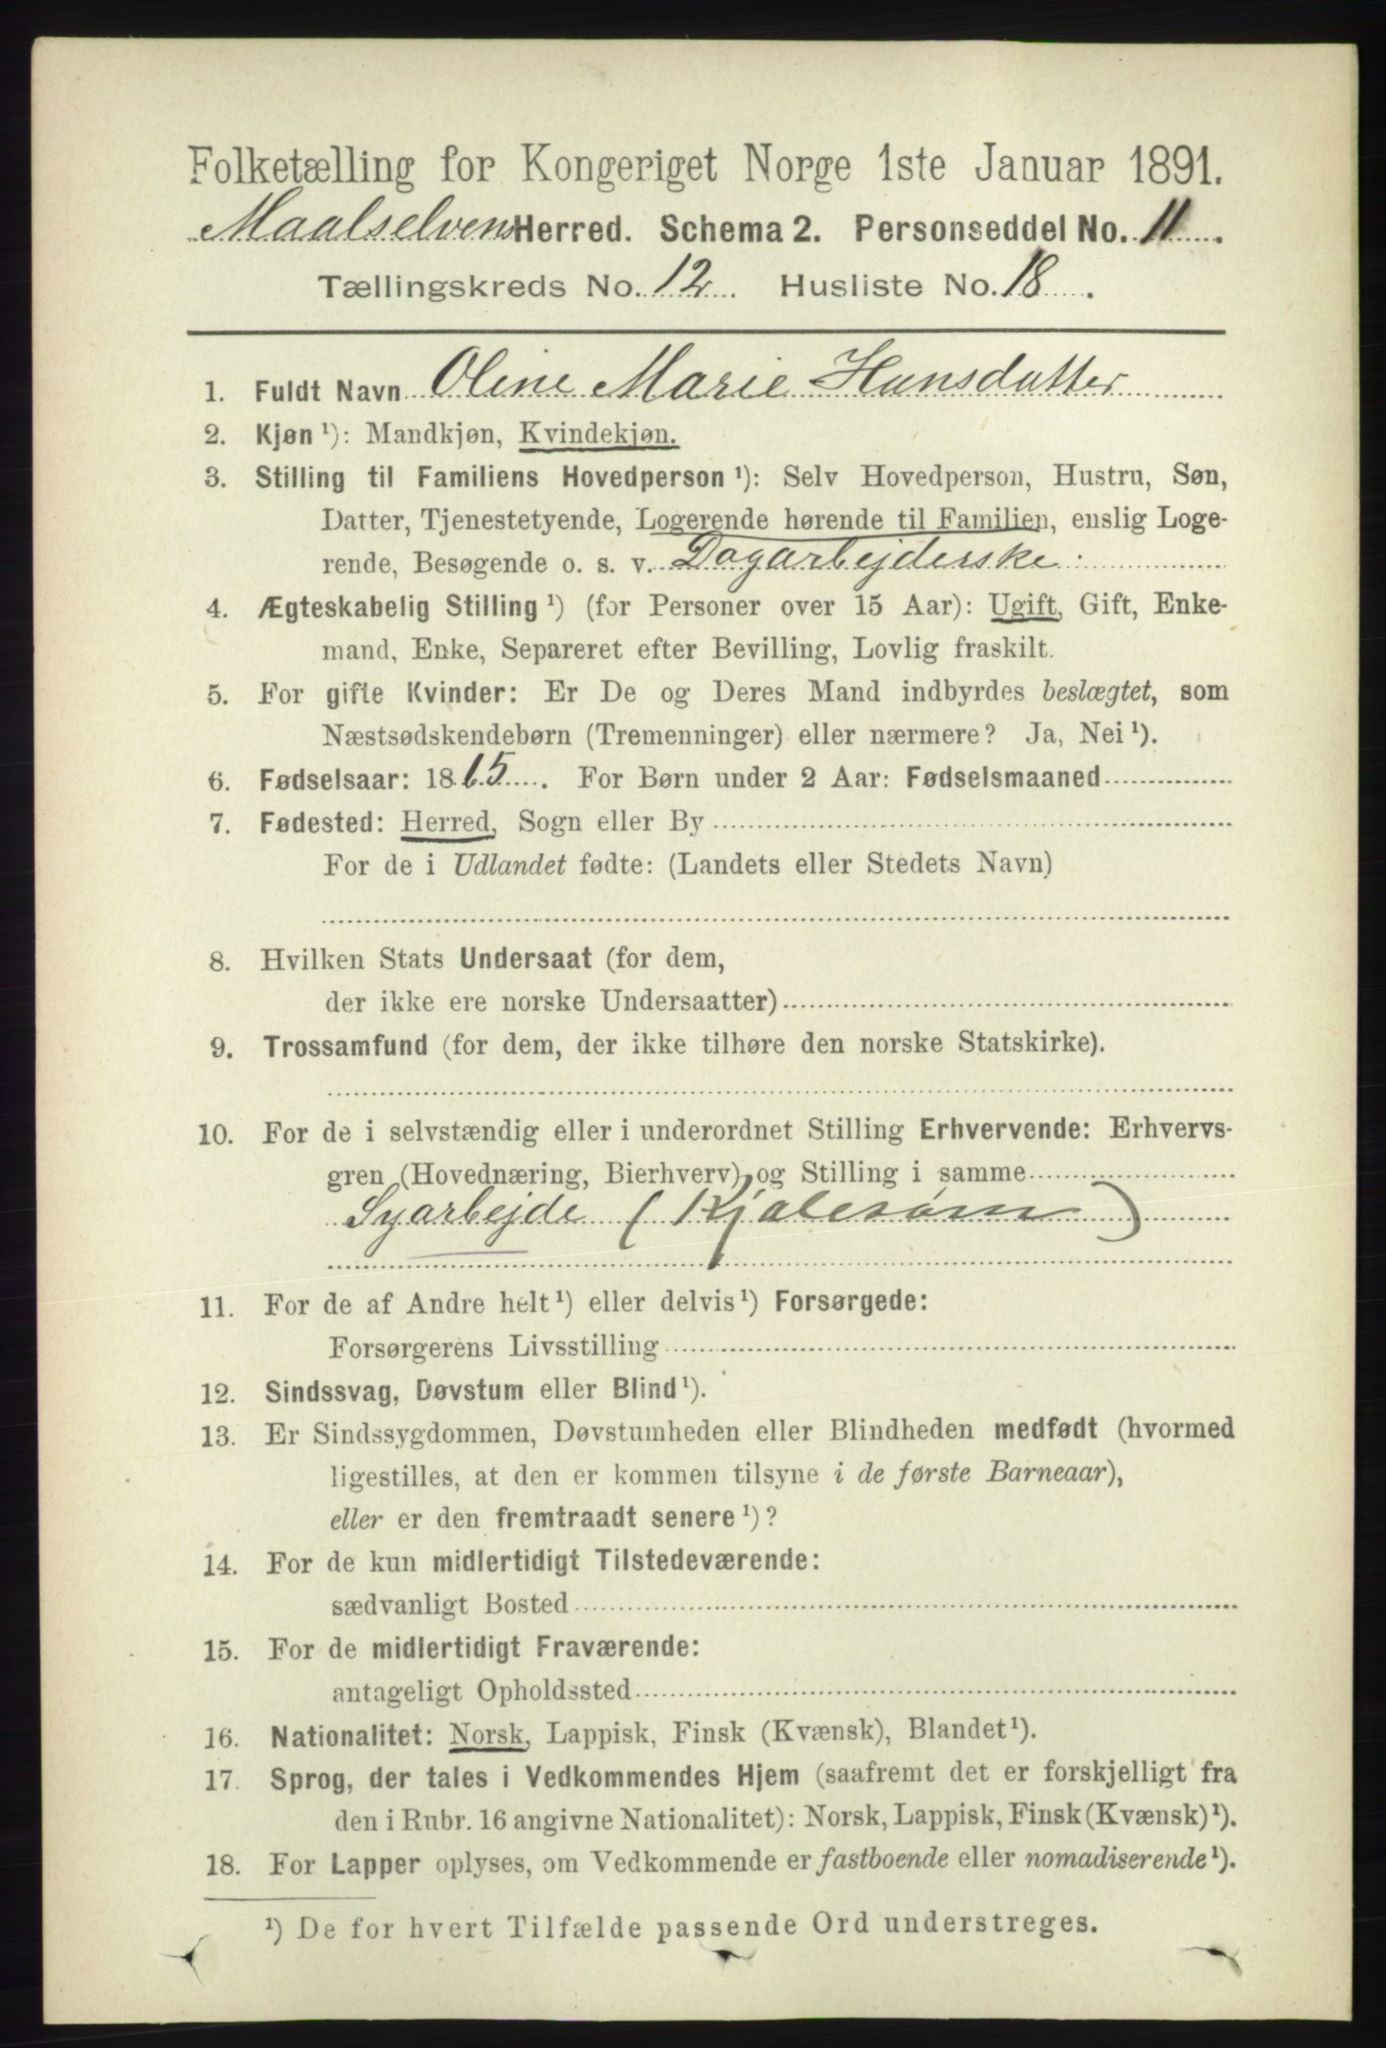 Folketælling for Kongeriget Norge 1ste Januar 1891.
Maalselvens Herred. Schema 2. Personseddel No. 11.
Tællingskreds No. 12. Husliste No. 18.
1. Fuldt Navn Oline Marie Hansdatter
2. Kjøn ¹): Mandkjøn, Kvindekjøn.
3. Stilling til Familiens Hovedperson ¹): Selv Hovedperson, Hustru, Søn,
Datter, Tjenestetyende, Logerende hørende til Familien, enslig Loge-
rende, Besøgende o. s. v. Dagarbejderske
4. Ægteskabelig Stilling ¹) (for Personer over 15 Aar): Ugift, Gift, Enke-
mand, Enke, Separeret efter Bevilling, Lovlig fraskilt.
5. For gifte Kvinder: Er De og Deres Mand indbyrdes beslægtet, som
Næstsødskendebørn (Tremenninger) eller nærmere? Ja, Nei ¹).
6. Fødselsaar: 1865. For Børn under 2 Aar: Fødselsmaaned
7. Fødested: Herred, Sogn eller By
For de i Udlandet fødte: (Landets eller Stedets Navn)
8. Hvilken Stats Undersaat (for dem,
der ikke ere norske Undersaatter)
9. Trossamfund (for dem, der ikke tilhøre den norske Statskirke).
10. For de i selvstændig eller i underordnet Stilling Erhvervende: Erhvervs-
gren (Hovednæring, Bierhverv) og Stilling i samme
Syarbejde (Kjolesøm)
11. For de af Andre helt ¹) eller delvis ¹) Forsørgede:
Forsørgerens Livsstilling
12. Sindssvag, Døvstum eller Blind ¹).
13. Er Sindssygdommen, Døvstumheden eller Blindheden medfødt (hvormed
ligestilles, at den er kommen tilsyne i de første Barneaar),
eller er den fremtraadt senere ¹)?
14. For de kun midlertidigt Tilstedeværende:
sædvanligt Bosted
15. For de midlertidigt Fraværende:
antageligt Opholdssted
16. Nationalitet: Norsk, Lappisk, Finsk (Kvænsk), Blandet ¹).
17. Sprog, der tales i Vedkommendes Hjem (saafremt det er forskjelligt fra
den i Rubr. 16 angivne Nationalitet): Norsk, Lappisk, Finsk (Kvænsk) ¹).
18. For Lapper oplyses, om Vedkommende er fastboende eller nomadiserende ¹).
¹) De for hvert Tilfælde passende Ord understreges.